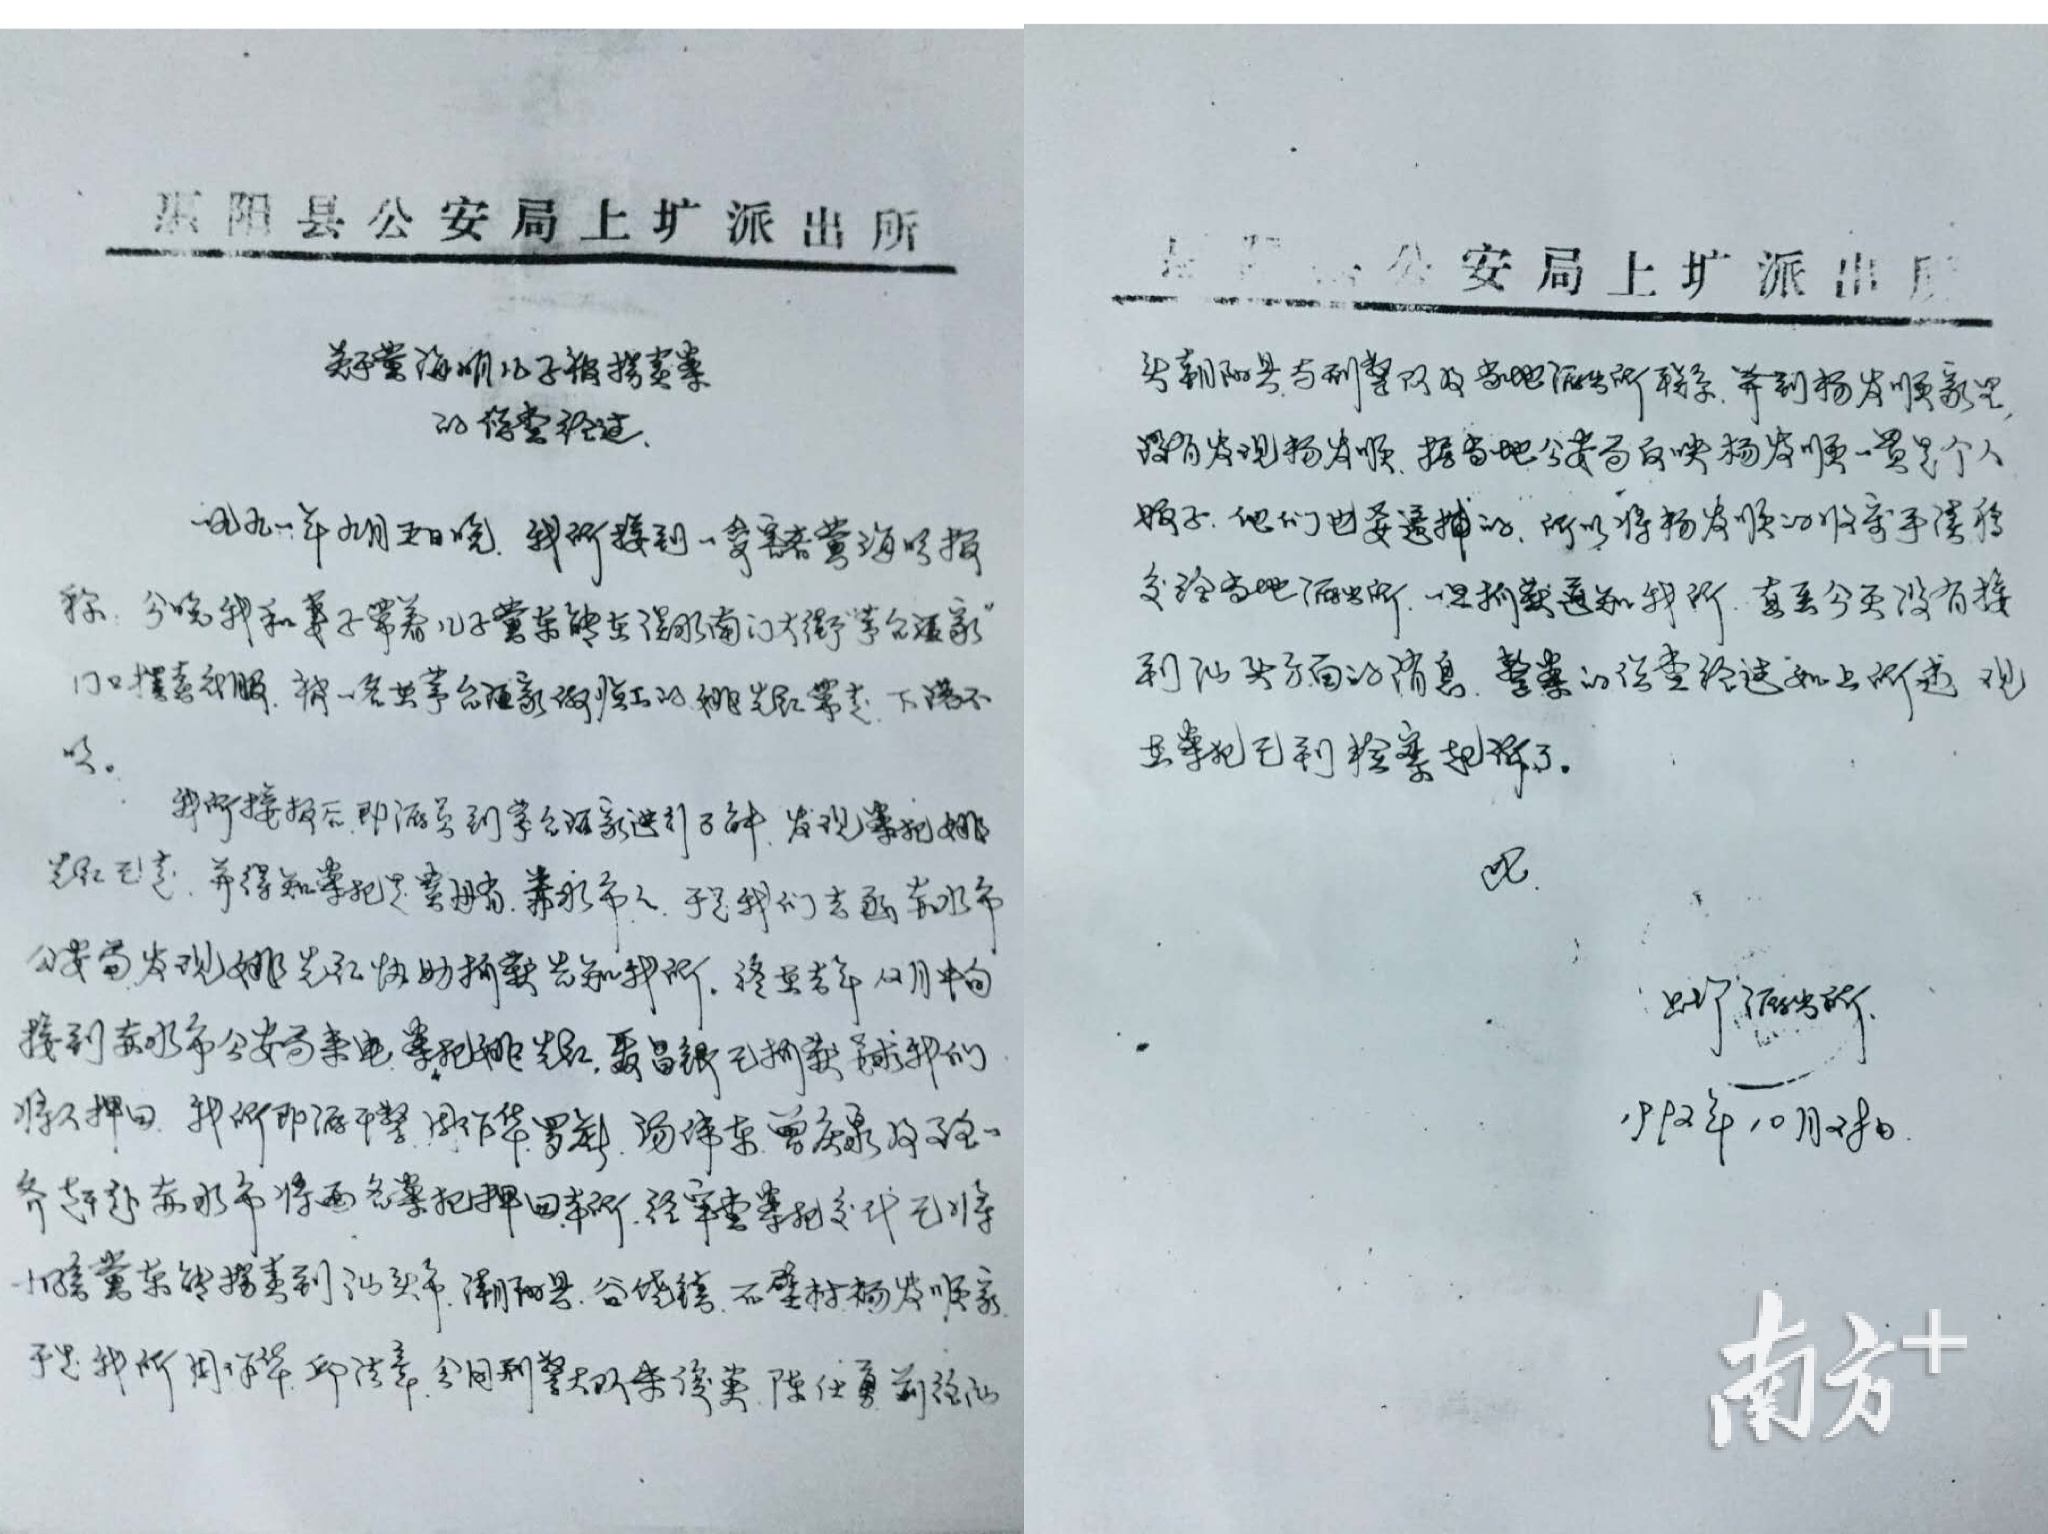 惠阳县公安局上圹派出所
关于黄海明儿子被拐卖案
的侦查经过.
一九九一年九月五日晚.我所接到一受害者黄海明报
称:今晚我和妻子带着儿子黄东能在淡水南门大街"茅台酒家"
门口摆卖衣服.被一名共茅台酒家做临工的姚光红带走.下落不
明。
我所接报后.即派员到茅台酒家进行了解.发现案犯姚
光红已走.并得知案犯是贵州省.赤水市人.于是我们去函赤水市
公安局.发现姚光红协助抓获告知我所。终在去年12月中旬
接到赤水市公安局来电.案犯姚光红.聂昌银已抓获 要求我们
将人押回.我所即派干警.周佰华.罗新.汤伟东.曾庆泉及
齐赶赴赤水市将两名案犯押回本所.经审查案犯交代已将
小孩黄东能拐卖到汕头市.潮阳县.谷饶镇.石壁村.杨发顺家.
于是我所周佰华.邱法章.会同刑警大队朱俊英.陈仕勇.前往汕
公安局上圹派出所
头朝阳县与刑警队及当地派出所联系.并到杨发顺家里,
没有发现杨发顺.据当地公安局反映杨发顺一贯是个人
贩子.他们也要逮捕的.所以将杨发顺的收审手续移
交给当地派出所.一但抓获通知我所.直至今天没有接
到汕头方面的消息.整案的侦查经过如上所述 现
在案犯已到检察起诉了。
此.
上圹派出所.
1992年10月2
南方+